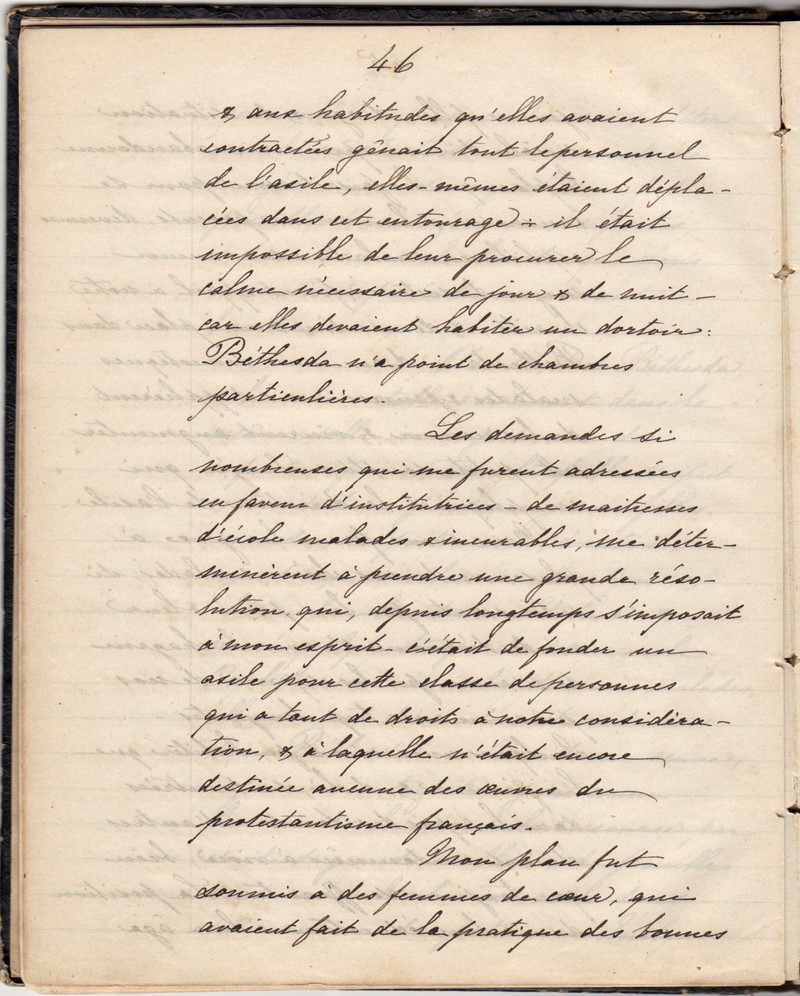 46
& aux habitudes qu'elles avaient
contractées gênait tout le personnel
de l'asile, elles-mêmes étaient dépla-
cées dans cet entourage : il était
impossible de leur procurer le
calme nécessaire de jour & de nuit -
car elles devaient habiter un dortoir :
Béthesda n'a point de chambres
particulières.
Les demandes si
nombreuses qui me furent adressées
en faveur d'institutrices - de maitresses
d'école malades & incurables, me déter-
minèrent à prendre une grande réso-
lution qui, depuis longtemps s'imposait
à mon esprit - c'était de fonder un
asile pour cette classe de personnes
qui a tant de droits à notre considéra-
tion, & à laquelle n'était encore
destinée aucune des œuvres du
protestantisme français.
Mon plan fut
soumis à des femmes de cœur, qui
avaient fait de la pratique des bonnes